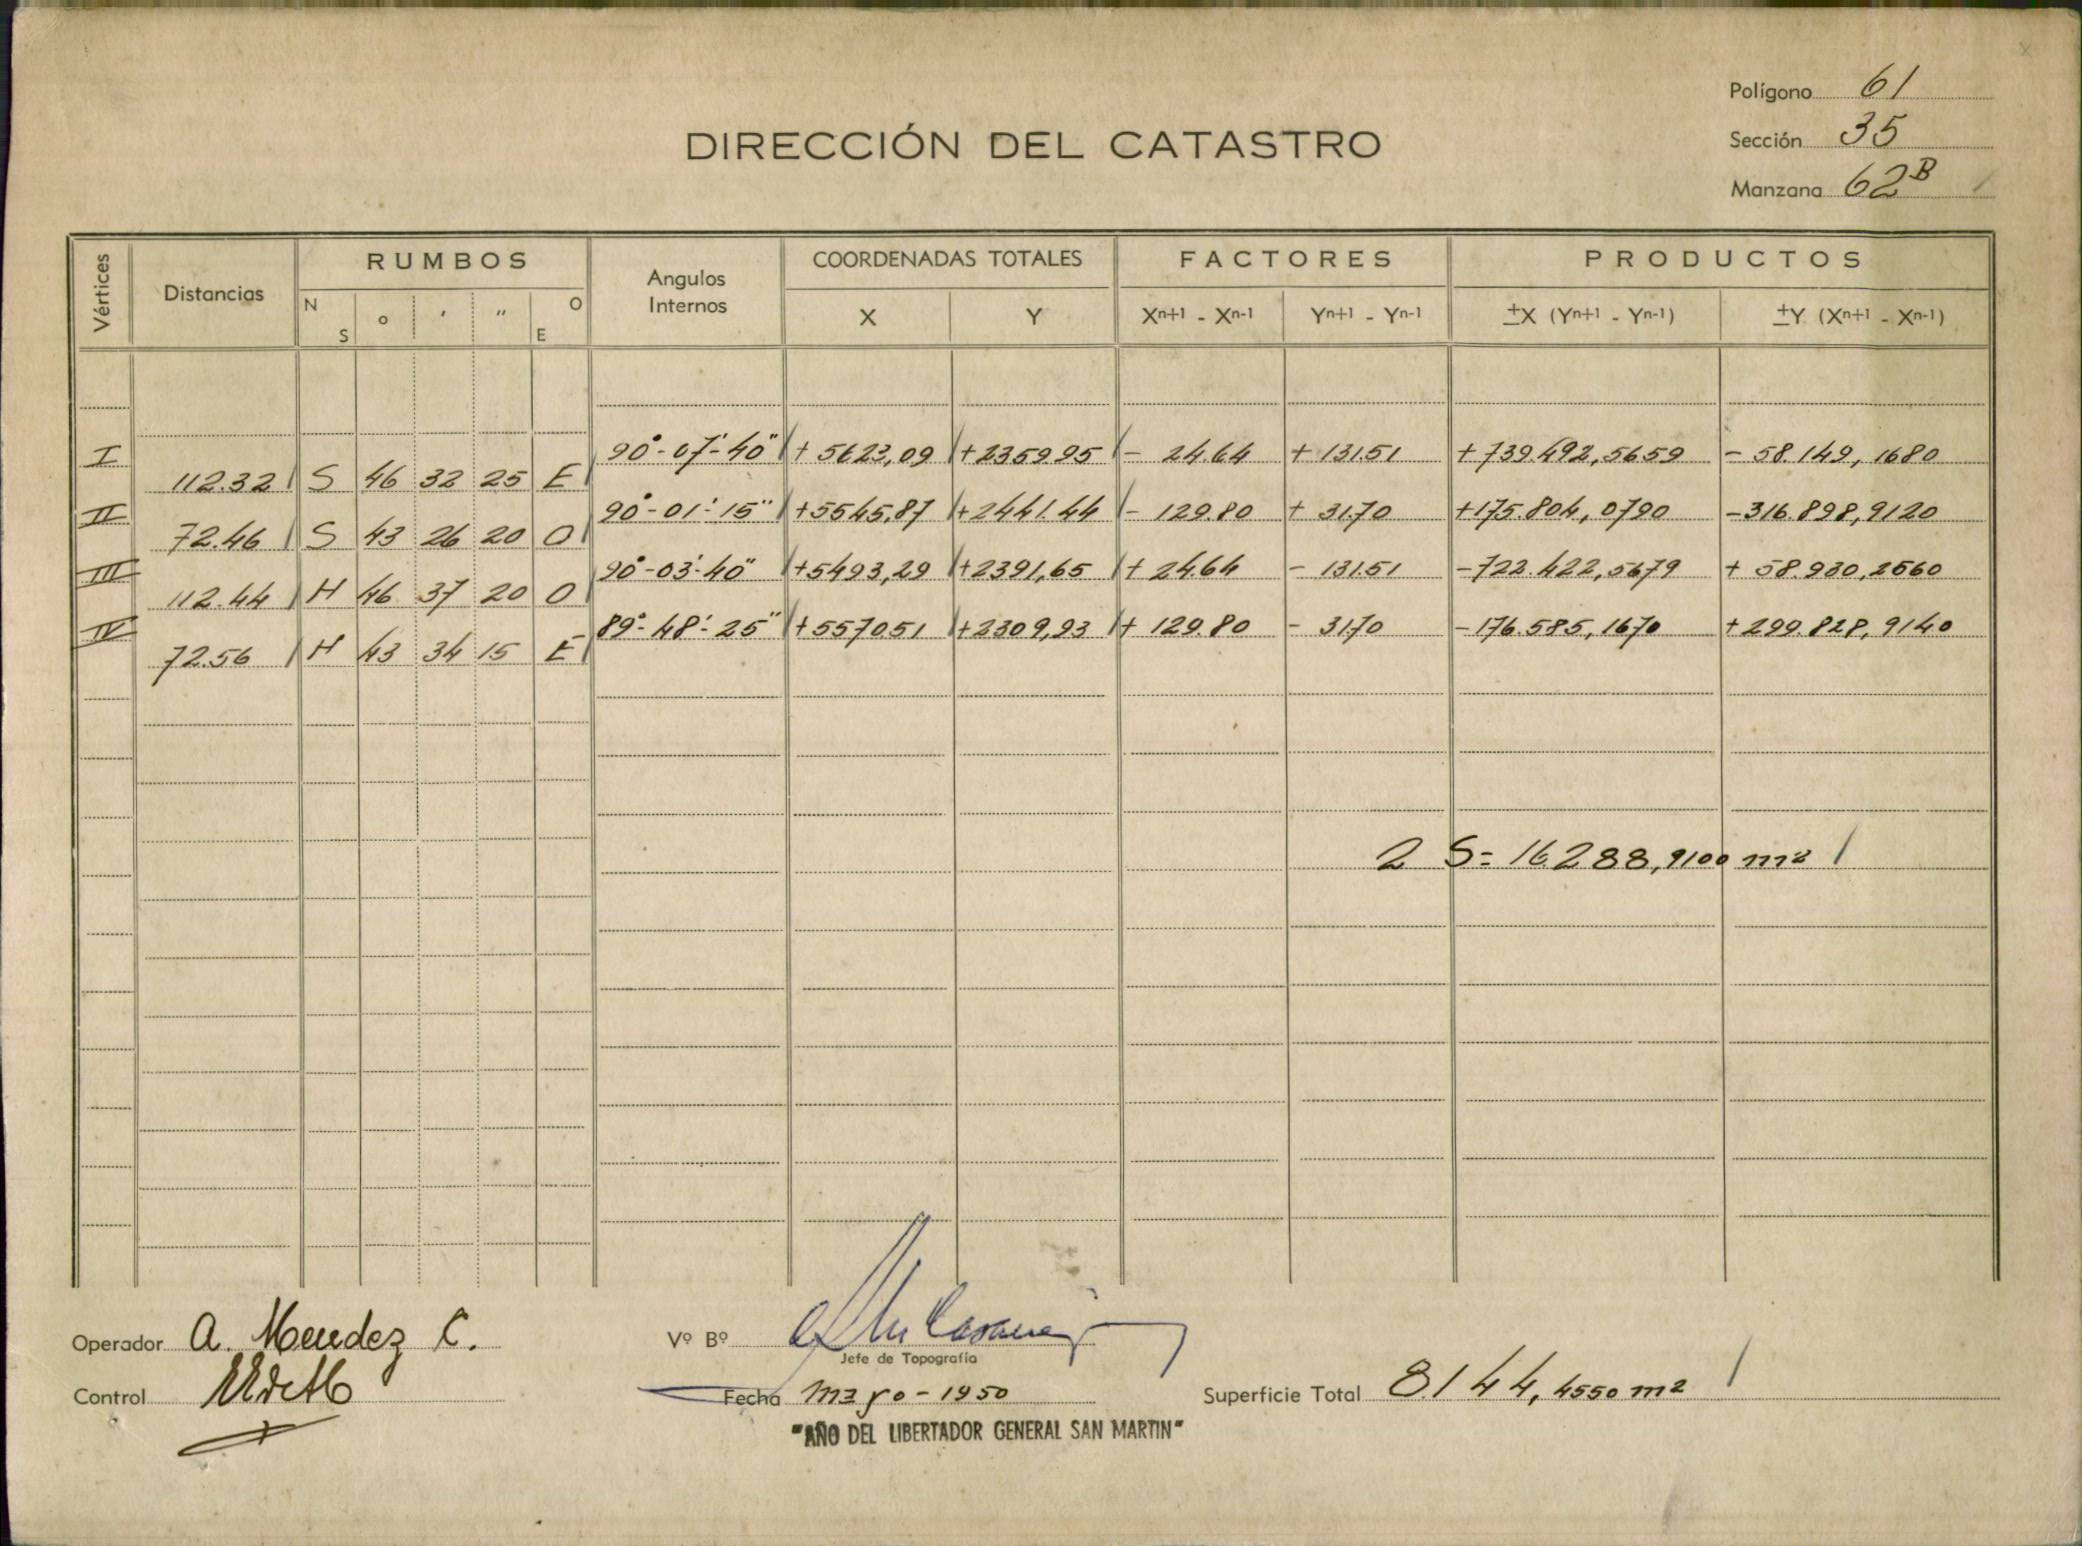 Polígono 61
DIRECCIÓN DEL CATASTRO
Sección 35
Manzana 62B
Vértices Distancias RUMBOS Angulos Internos COORDENADAS TOTALES FACTORES PRODUCTOS
N S o ' '' O E X Y Xn+1 - Xn-1 Yn+1 - Yn-1 ±X (Yn+1 - Yn-1) ±Y (Xn+1 - Xn-1)
I 90°-07'-40" +5623,09 +2359.95 - 24.64 +131.51 +739.492,5659 -58.149,1680
112.32 S 46 32 25 E
II 90°-01'-15" +5545,87 +2441.44 - 129.80 + 31.70 +175.804,0790 -316.898,9120
72.46 S 43 26 20 O
III 90°-03'-40" +5493,29 +2391,65 + 24.64 - 131.51 -722.422,5679 +58.930,2560
112.44 N 46 37 20 O
IV 89°-48'-25" +5570.51 +2309,93 + 129.80 - 31.70 -176.585,1670 +299.828,9140
72.56 N 43 34 15 E
2 S = 16.288,9100 m2
Operador A. Mendez C.
Vº Bº
Jefe de Topografía
Control
Fecha mayo-1950
Superficie Total 8.144,4550 m2
"AÑO DEL LIBERTADOR GENERAL SAN MARTIN"